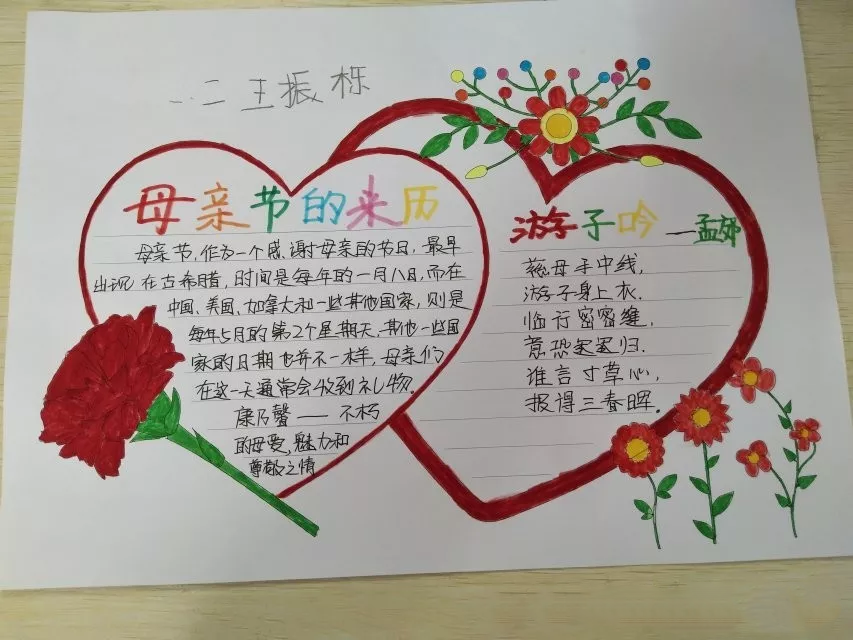 一.二 王振栎
母亲节的来历
母亲节,作为一个感谢母亲的节日,最早
出现在古希腊,时间是每年的一月八日,而在
中国、美国、加拿大和一些其他国家,则是
每年5月的第2个星期天,其他一些国
家的日期也并不一样,母亲们
在这一天通常会收到礼物.
康乃馨——不朽
的母爱,魅力和
尊敬之情
游子吟——孟郊
慈母手中线,
游子身上衣.
临行密密缝,
意恐迟迟归.
谁言寸草心,
报得三春晖.